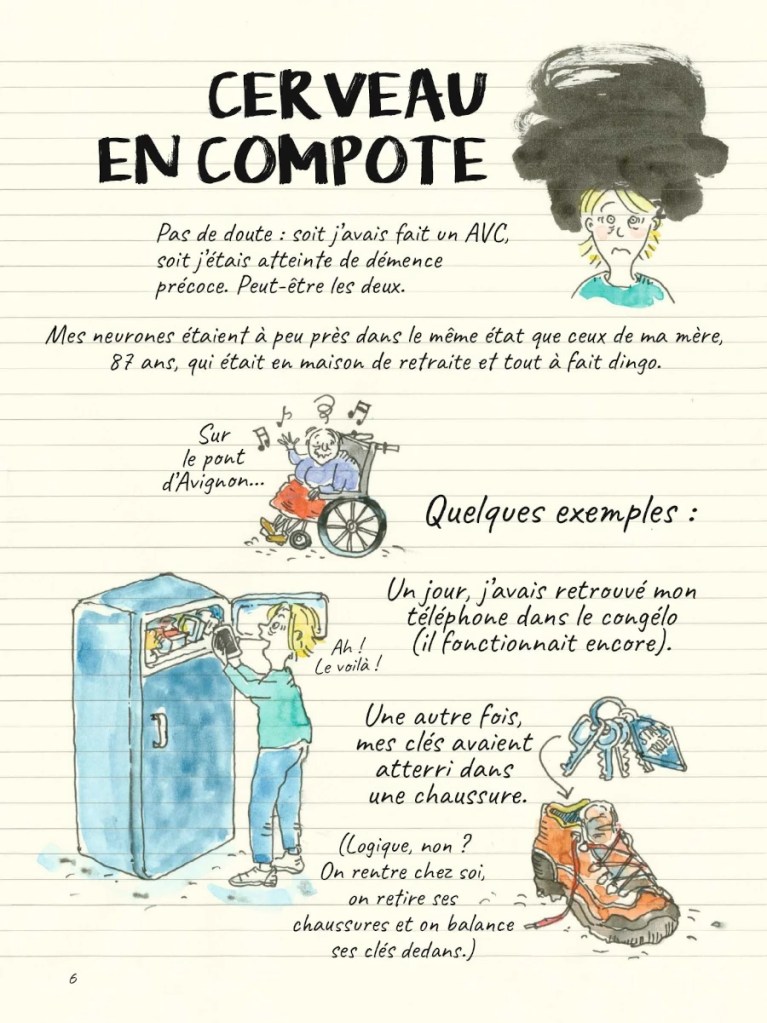 CERVEAU
EN COMPOTE
Pas de doute : soit j'avais fait un AVC,
soit j'étais atteinte de démence
précoce. Peut-être les deux.
Mes neurones étaient à peu près dans le même état que ceux de ma mère,
87 ans, qui était en maison de retraite et tout à fait dingo.
Sur
le pont
d'Avignon...
Quelques exemples :
Un jour, j'avais retrouvé mon
téléphone dans le congélo
(il fonctionnait encore).
Ah !
Le voilà !
Une autre fois,
mes clés avaient
atterri dans
une chaussure.
(Logique, non ?
On rentre chez soi,
on retire ses
chaussures et on balance
ses clés dedans.)
6